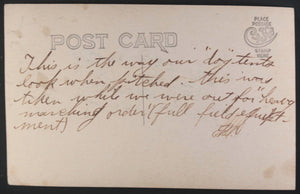 POST CARD
PLACE
POSTAGE
STAMP
HERE
This is the way our "dog" tents
look when pitched. this was
taken while we were out for "heavy
marching order" (full field equip-
ment)